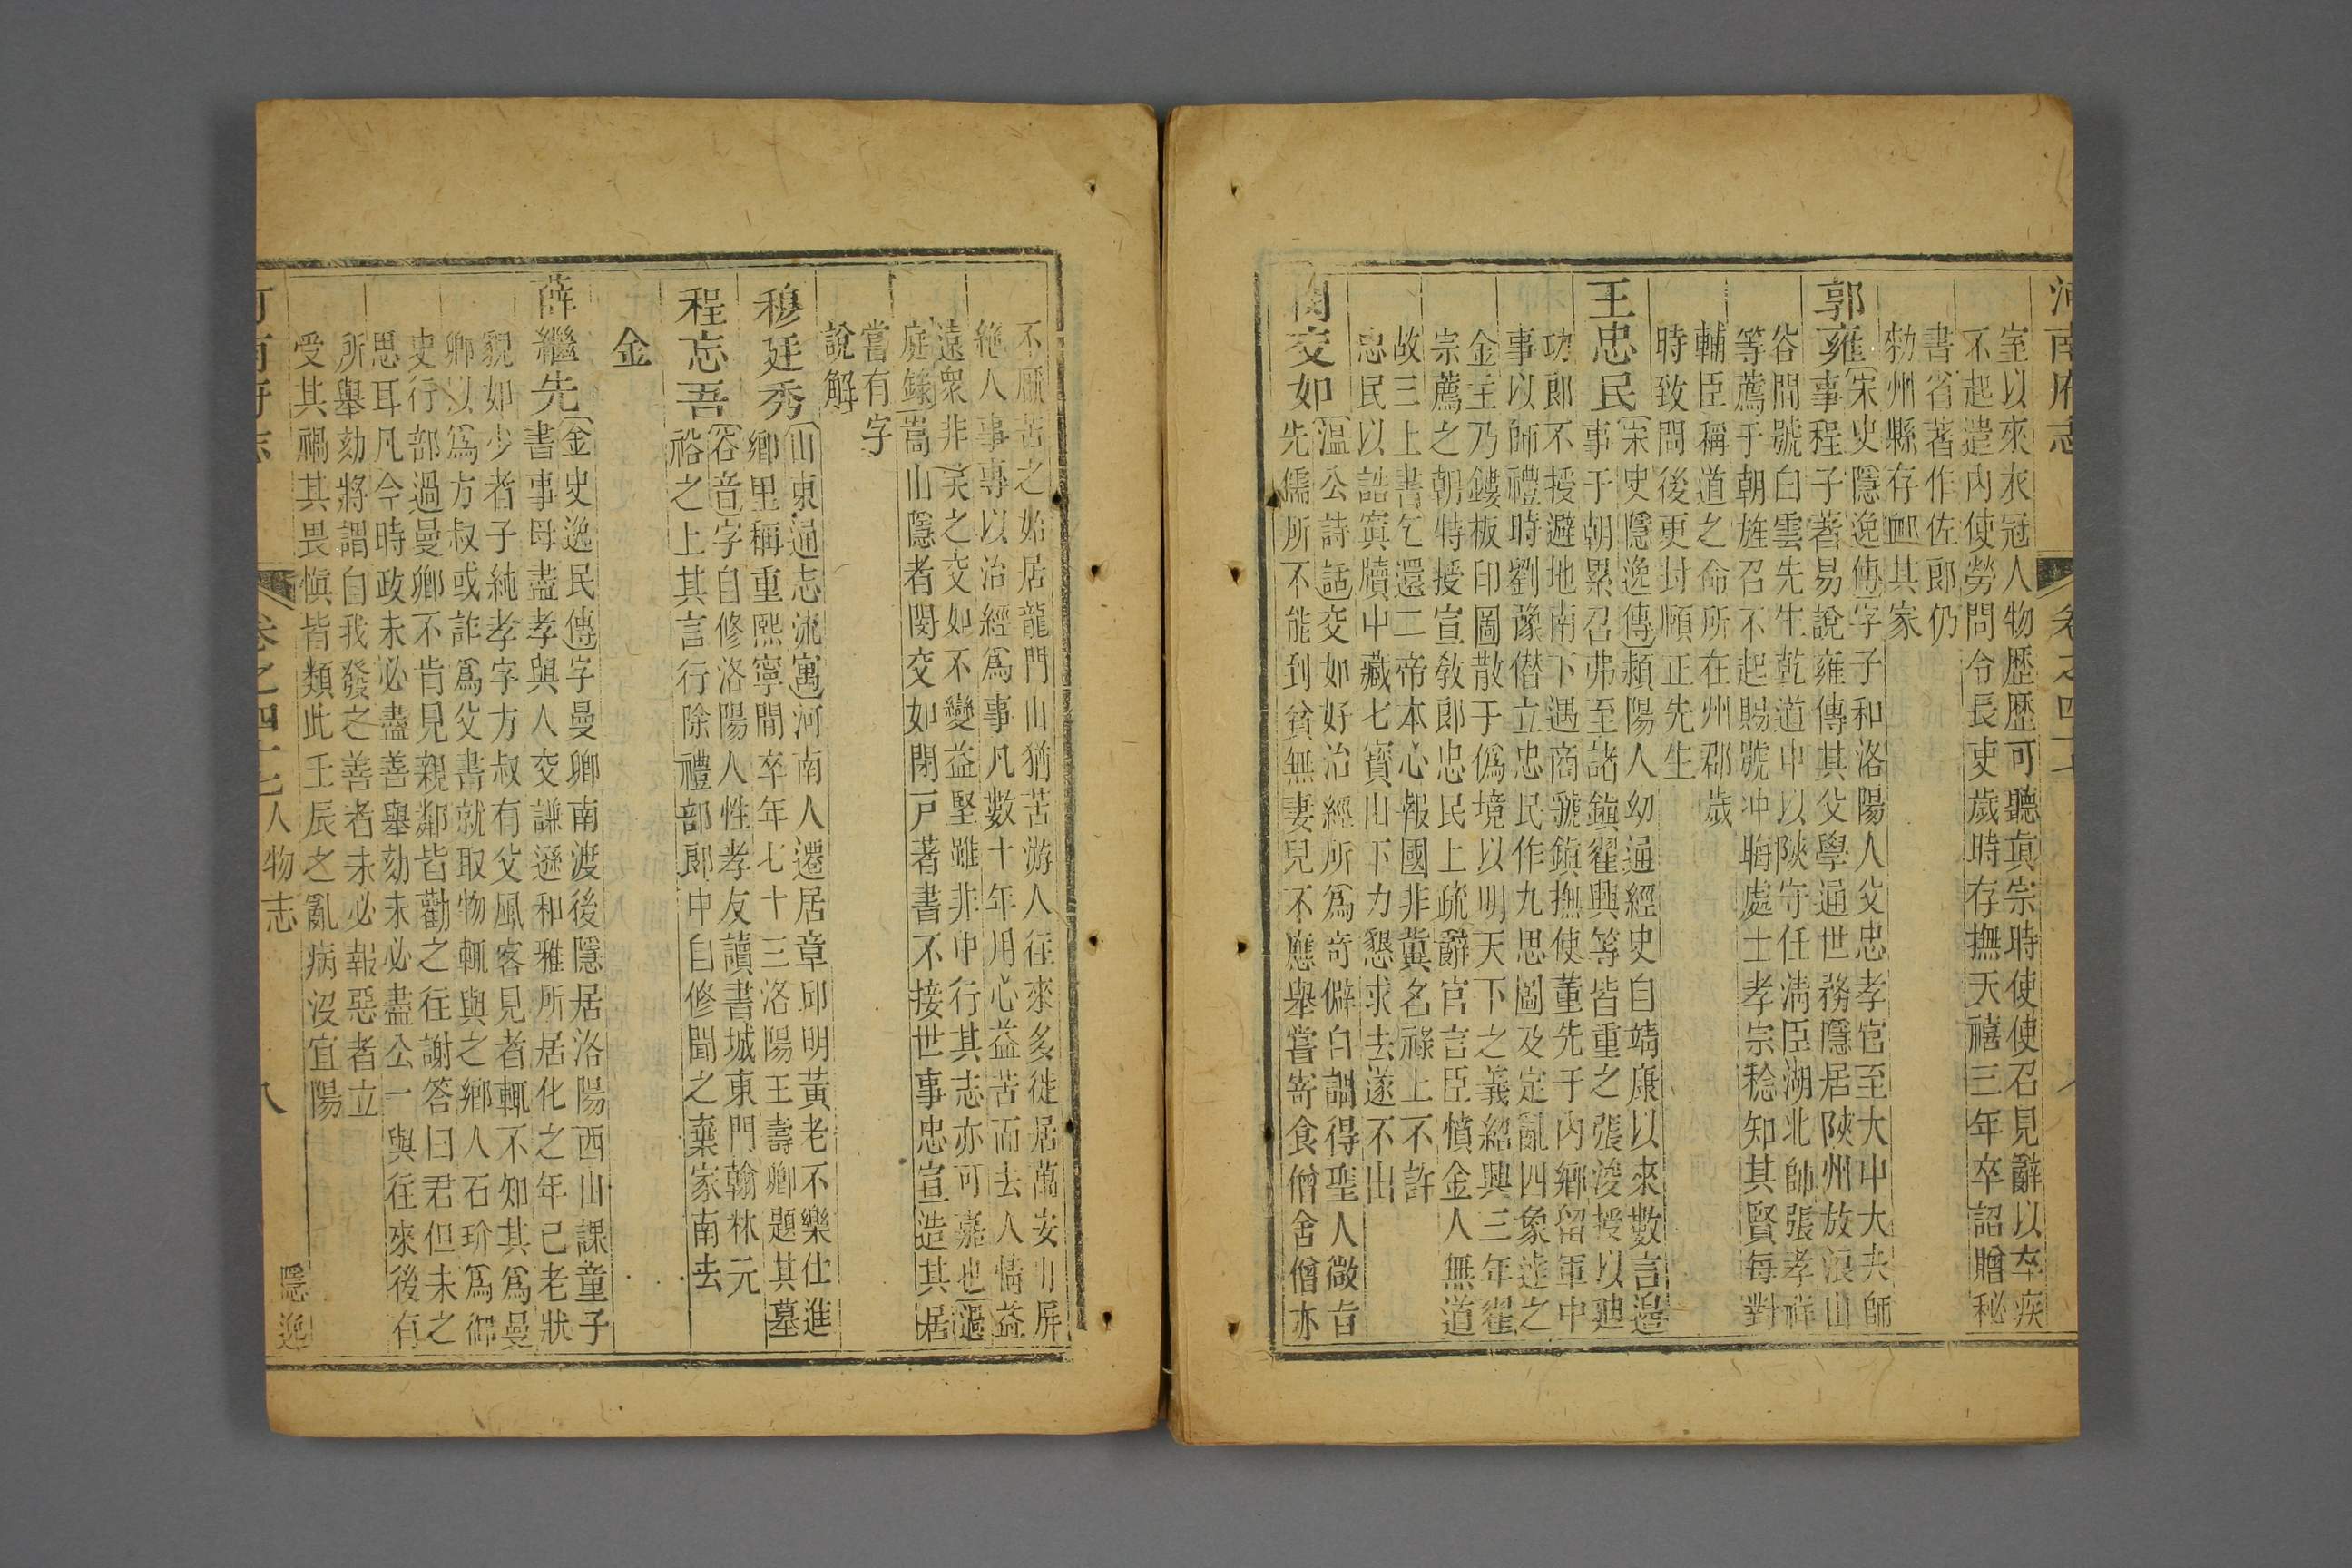 河南府志 卷之四十七
室以來衣冠人物歷歷可聽真宗時使使召見辭以卒疾
不起遣內使勞問令長吏歲時存撫天禧三年卒詔贈秘
書省著作佐郎仍
勑州縣存卹其家
郭雍
宋史隱逸傳字子和洛陽人父忠孝官至大中大夫師
事程子著易說雍傳其父學通世務隱居陝州放浪山
谷間號白雲先生乾道中以陝守任淸臣湖北帥張孝祥
等薦于朝旌召不起賜號冲晦處士孝宗稔知其賢每對
輔臣稱道之命所在州郡歲
時致問後更封頤正先生
王忠民
宋史隱逸傳潁陽人幼通經史自靖康以來數言邊
事于朝累召弗至諸鎮翟興等皆重之張浚授以迪
功郎不授避地南下遇商虢鎮撫使董先于內鄉留軍中
事以師禮時劉豫僭立忠民作九思圖及定亂四象達之
金主乃鏤板印圖散于僞境以明天下之義紹興三年翟
宗薦之朝特授宣敎郎忠民上疏辭官言臣憤金人無道
故三上書乞還二帝本心報國非冀名祿上不許
忠民以誥寘牘中藏七寶山下力懇求去遂不出
閔交如
溫公詩話交如好治經所爲奇僻自謂得聖人微旨
先儒所不能到貧無妻兒不應舉嘗寄食僧舍僧亦
不厭苦之始居龍門山猶苦游人往來多徙居萬安山屏
絶人事專以治經爲事凡數十年用心益苦而去人情益
遠衆非笑之交如不變益堅雖非中行其志亦可嘉也漚
庭錄嵩山隱者閔交如閉戶著書不接世事忠宣造其居
嘗有字
說解
穆廷秀
山東通志流寓河南人遷居章邱明黃老不樂仕進
鄉里稱重熙寧間卒年七十三洛陽王壽卿題其墓
程忘吾
谷音字自修洛陽人性孝友讀書城東門翰林元
裕之上其言行除禮部郎中自修聞之棄家南去
金
薛繼先
金史逸民傳字曼卿南渡後隱居洛陽西山課童子
書事母盡孝與人交謙遜和雅所居化之年已老狀
貌如少者子純孝字方叔有父風客見者輒不知其爲曼
卿以爲方叔或詐爲父書就取物輒與之鄉人石玠爲御
史行部過曼卿不肯見親鄰皆勸之往謝答曰君但未之
思耳凡今時政未必盡善舉劾未必盡公一與往來後有
所舉劾將謂自我發之善者未必報惡者立
受其禍其畏愼皆類此壬辰之亂病沒宜陽
河南府志 卷之四十七 人物志 八 隱逸